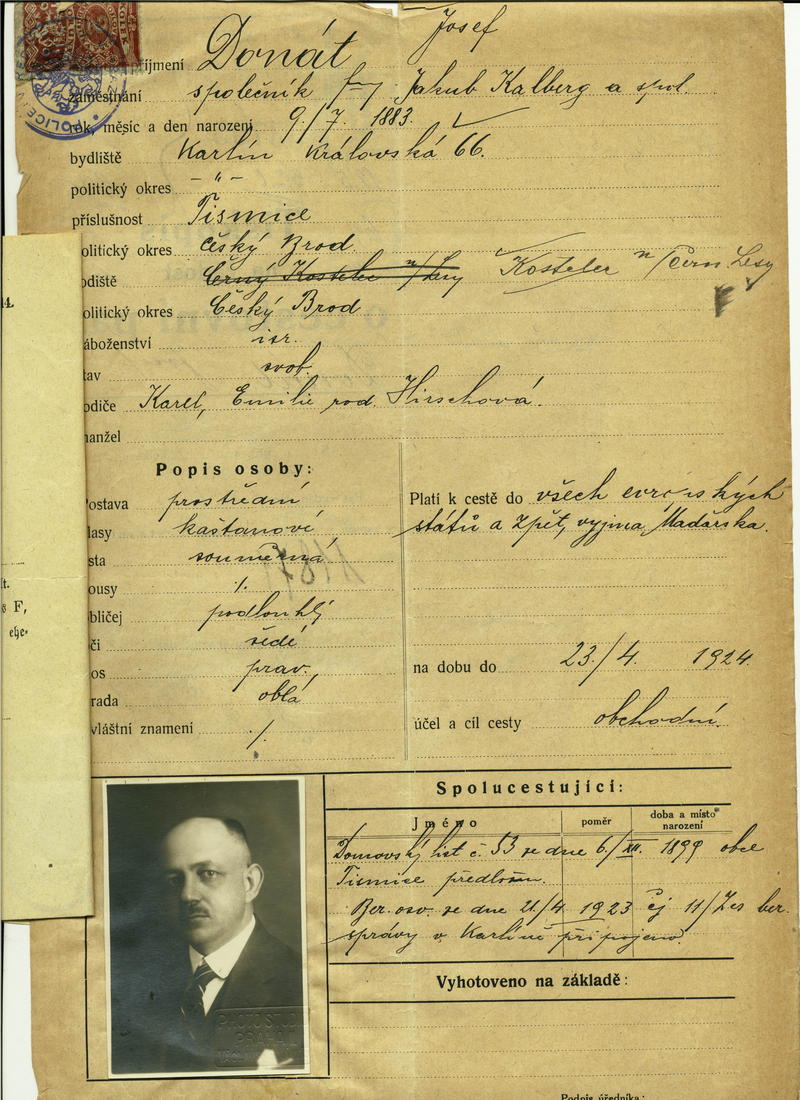 Josef
říjmení Donát
zaměstnání společník fmy Jakub Kalberg a spol.
rok, měsíc a den narození 9./7. 1883.
bydliště Karlín Královská 66.
politický okres — " —
příslušnost Tismice
politický okres Český Brod
odiště Černý Kostelec n/Lesy Kostelec n/Čern. Lesy
olitický okres Český Brod
áboženství isr.
tav svob.
odiče Karel, Emilie roz. Hirschová.
manžel
Popis osoby:
ostava prostřední
lasy kaštanové
sta souměrná
ousy /.
bličej podlouhlý
či šedé
os prav.,
rada oblá
vláštní znamení /.
Platí k cestě do všech evropských
států a zpět, vyjma Maďarska.
na dobu do 23./4. 1924.
účel a cíl cesty obchodní.
Spolucestující:
Jméno poměr doba a místo narození
Domovský list č. 53 ze dne 6/XII. 1899 obce
Tismice předložen.
Ber. osv. ze dne 21/4 1923 čj 11/Zes ber.
správy v Karlíně připojeno.
Vyhotoveno na základě:
Podpis úředníka:
4.
t.
F,
POLICE